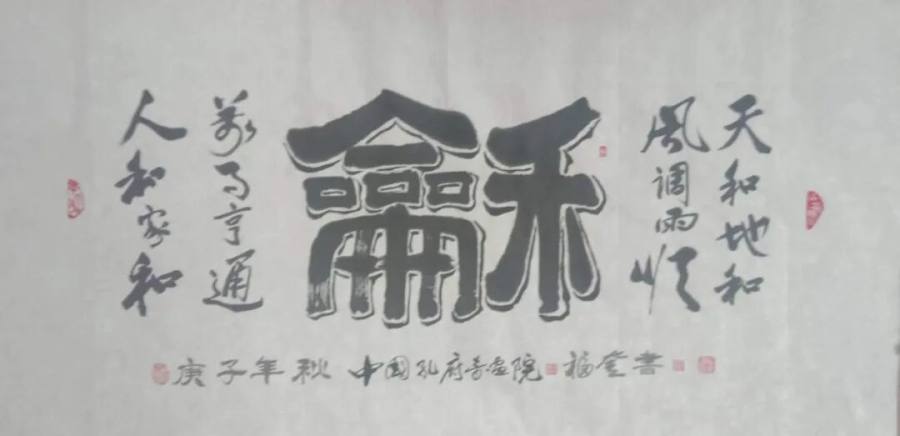 天和地和
風调雨顺
龢
萬事亨通
人和家和
庚子年秋 中國孔府書畫院 福 書